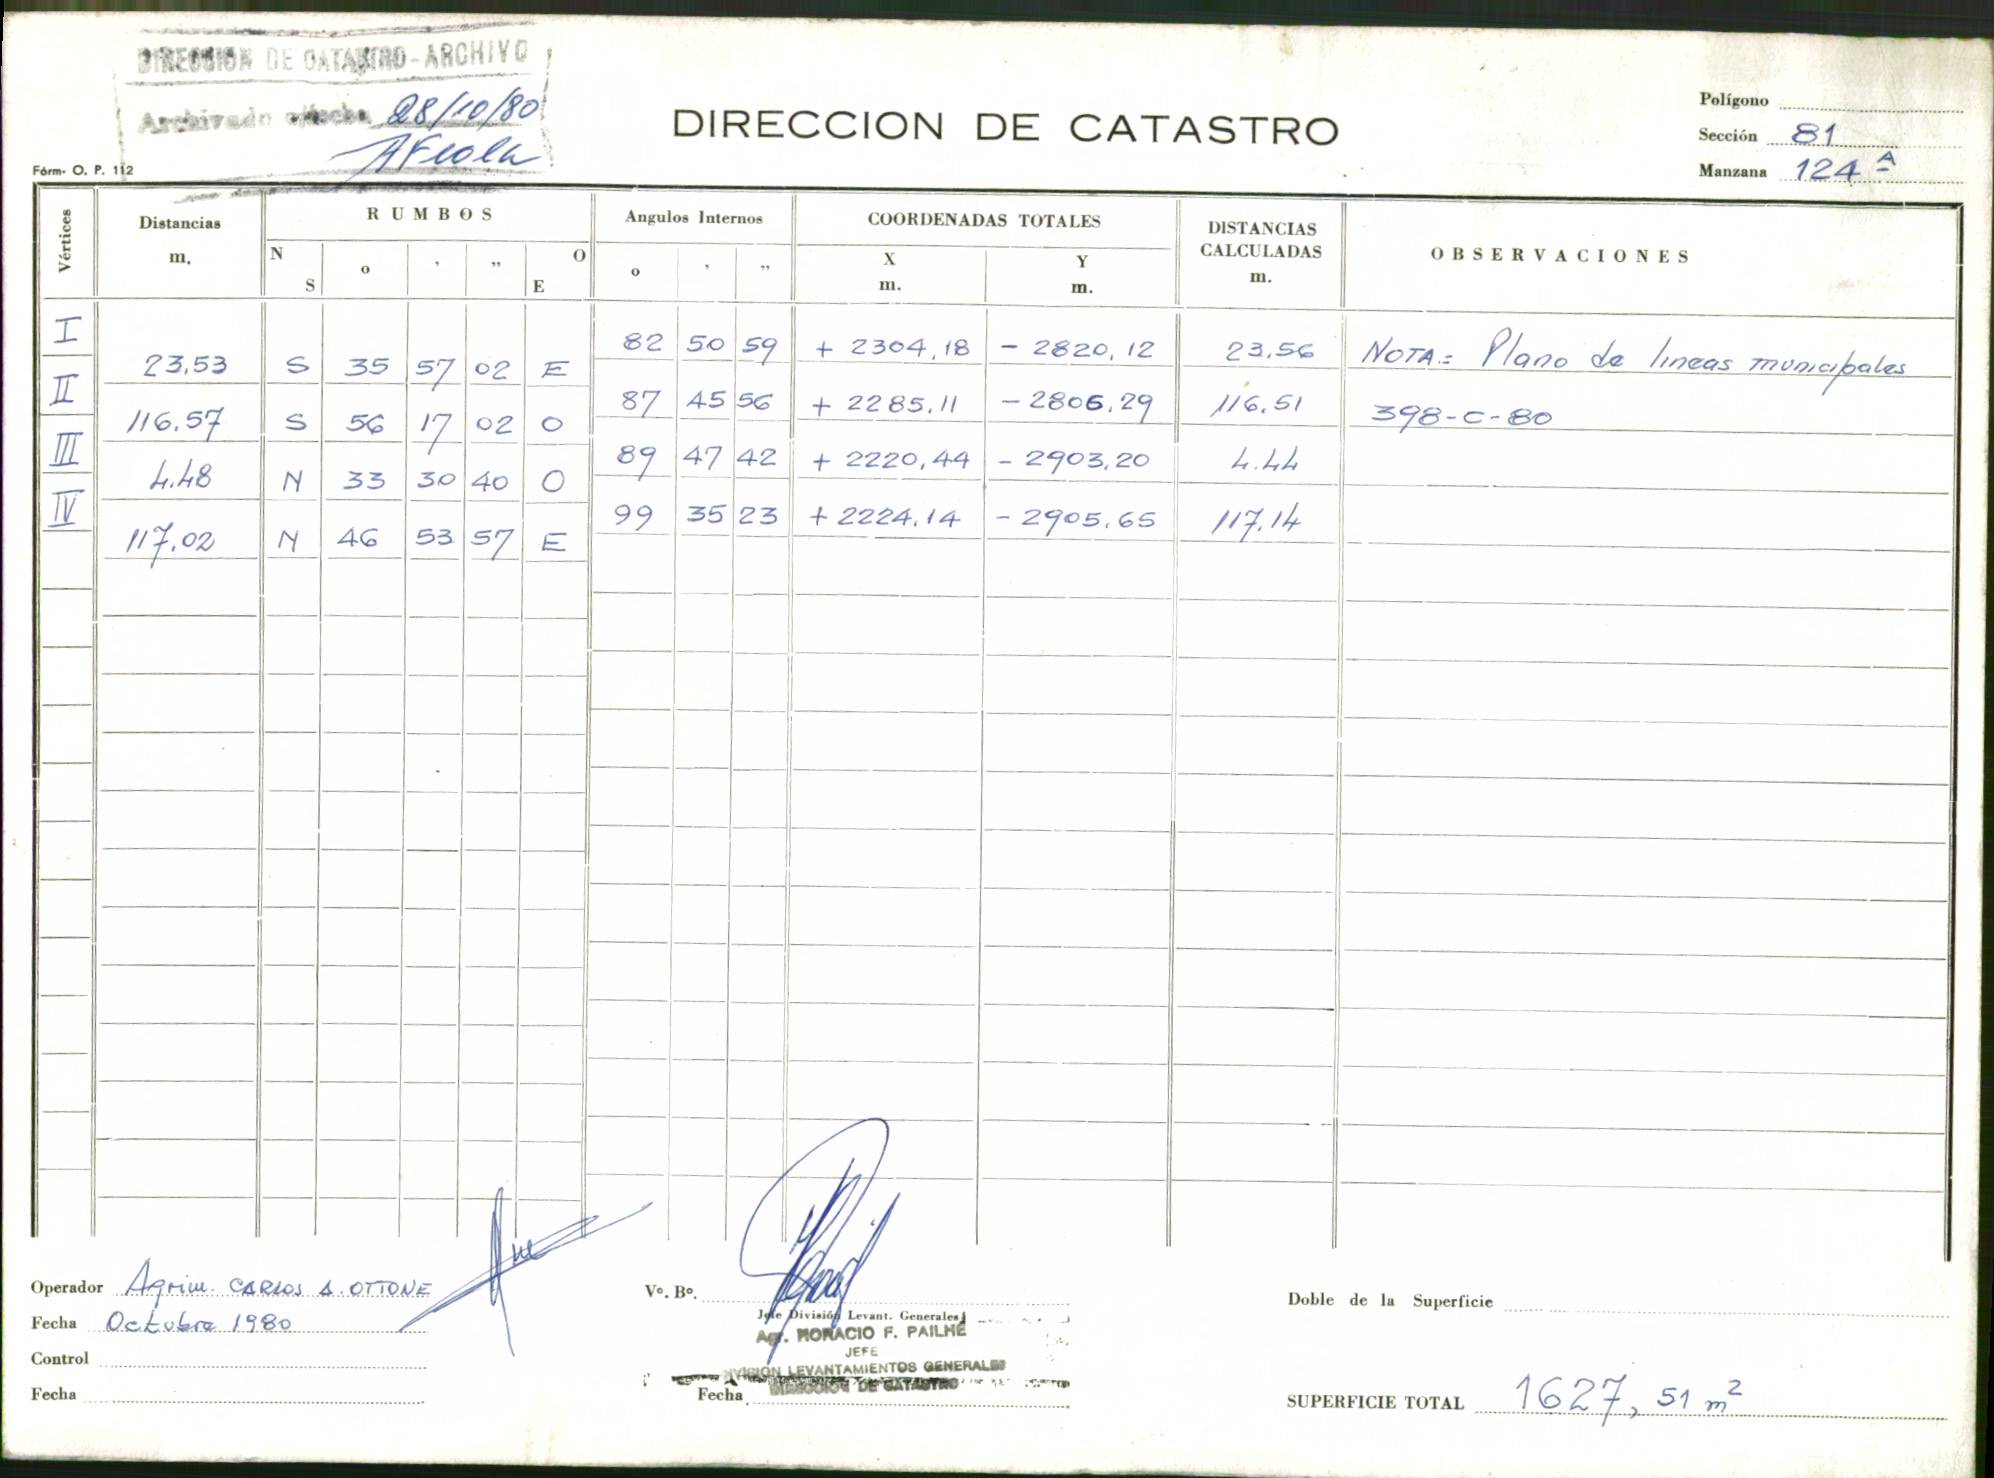 DIRECCION DE CATASTRO - ARCHIVO
Archivado fecha 28/10/80
DIRECCION DE CATASTRO
Fórm. O. P. 112
Polígono
Sección 81
Manzana 124 A
Vértices Distancias m. RUMBOS N S o ' " O E Angulos Internos o ' " COORDENADAS TOTALES X m. Y m. DISTANCIAS CALCULADAS m. OBSERVACIONES
I 82 50 59 + 2304,18 - 2820,12 23.56 NOTA: Plano de lineas municipales
23.53 S 35 57 02 E
II 87 45 56 + 2285,11 - 2806,29 116.51 398-C-80
116.57 S 56 17 02 O
III 89 47 42 + 2220,44 - 2903,20 4.44
4.48 N 33 30 40 O
IV 99 35 23 + 2224,14 - 2905,65 117.14
117.02 N 46 53 57 E
Operador Agrim. CARLOS A. OTTONE
Fecha Octubre 1980
Control
Fecha
Vº. Bº.
Jefe División Levant. Generales
Agr. HORACIO F. PAILHE
JEFE
DIVISION LEVANTAMIENTOS GENERALES
DIRECCION DE CATASTRO
Fecha
Doble de la Superficie
SUPERFICIE TOTAL 1627,51 m²